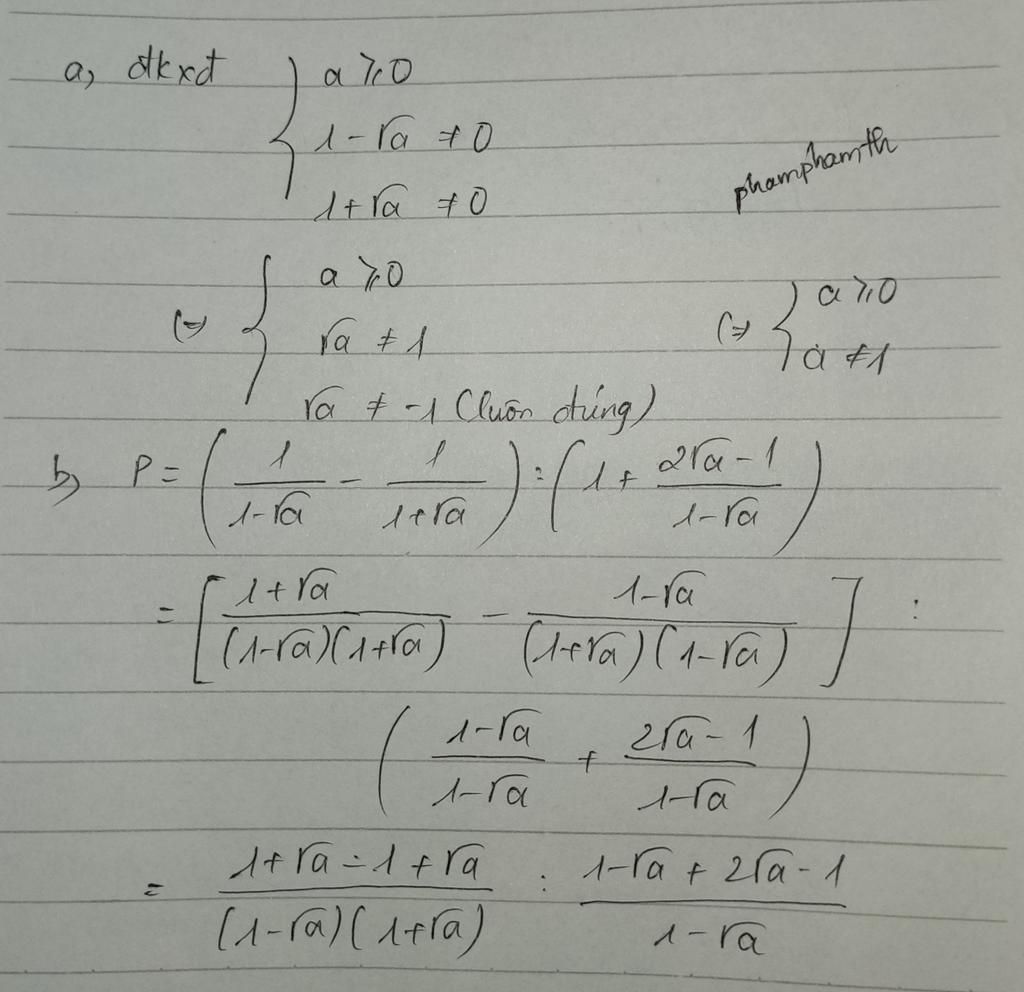 a, đkxđ { a ≥ 0
1 - √a ≠ 0
1 + √a ≠ 0
phamphamth
(=) { a ≥ 0
√a ≠ 1
√a ≠ -1 (luôn đúng)
(=) { a ≥ 0
a ≠ 1
b, P = ( 1/(1-√a) - 1/(1+√a) ) : ( 1 + (2√a - 1)/(1-√a) )
= [ (1+√a)/((1-√a)(1+√a)) - (1-√a)/((1+√a)(1-√a)) ] :
( (1-√a)/(1-√a) + (2√a - 1)/(1-√a) )
= (1+√a - 1 + √a)/((1-√a)(1+√a)) : (1-√a + 2√a - 1)/(1-√a)